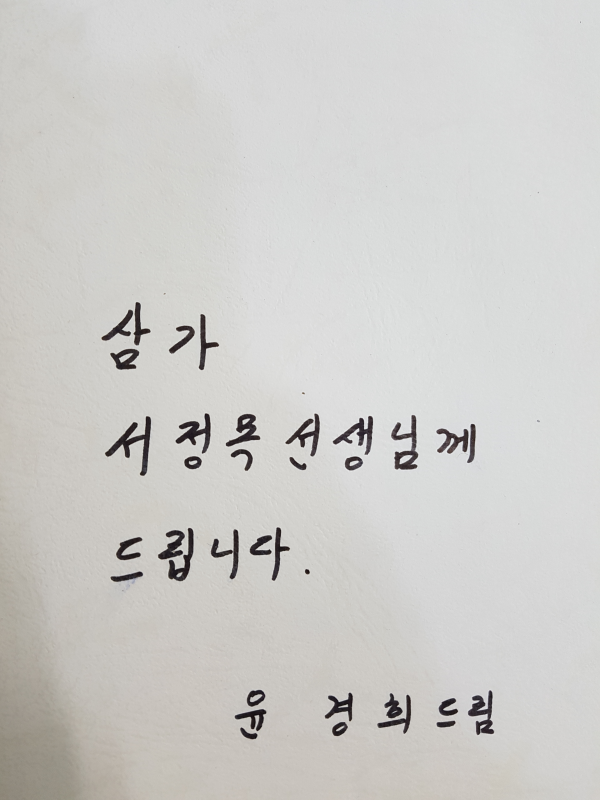 삼가
서정목 선생님께
드립니다.
윤 경희 드림